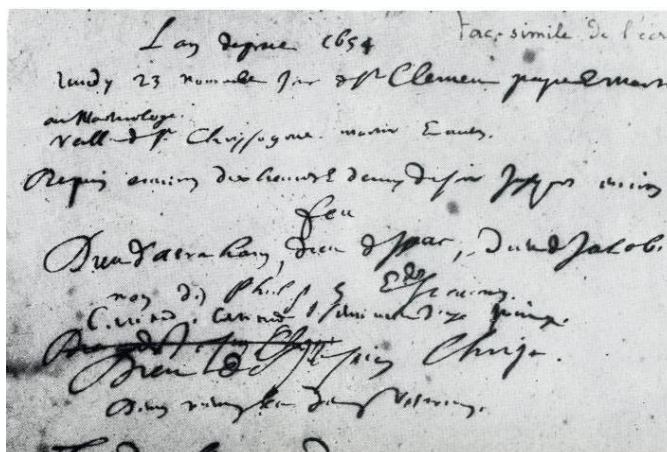 fac-simile de l'écr
L'an de grace 1654
Lundy 23 novembre jour de st Clement pape & mart
au Martirologe
veille de st Chrisogone martir & autres.
Depuis environ dix heures & demy du soir jusques environ
feu
Dieu d'Abraham, dieu d'Isaac, dieu de Jacob.
non des Philosophes & des scavans.
joye paix.
Dieu de Jesus Christ.
Deum meum et Deum vestrum.